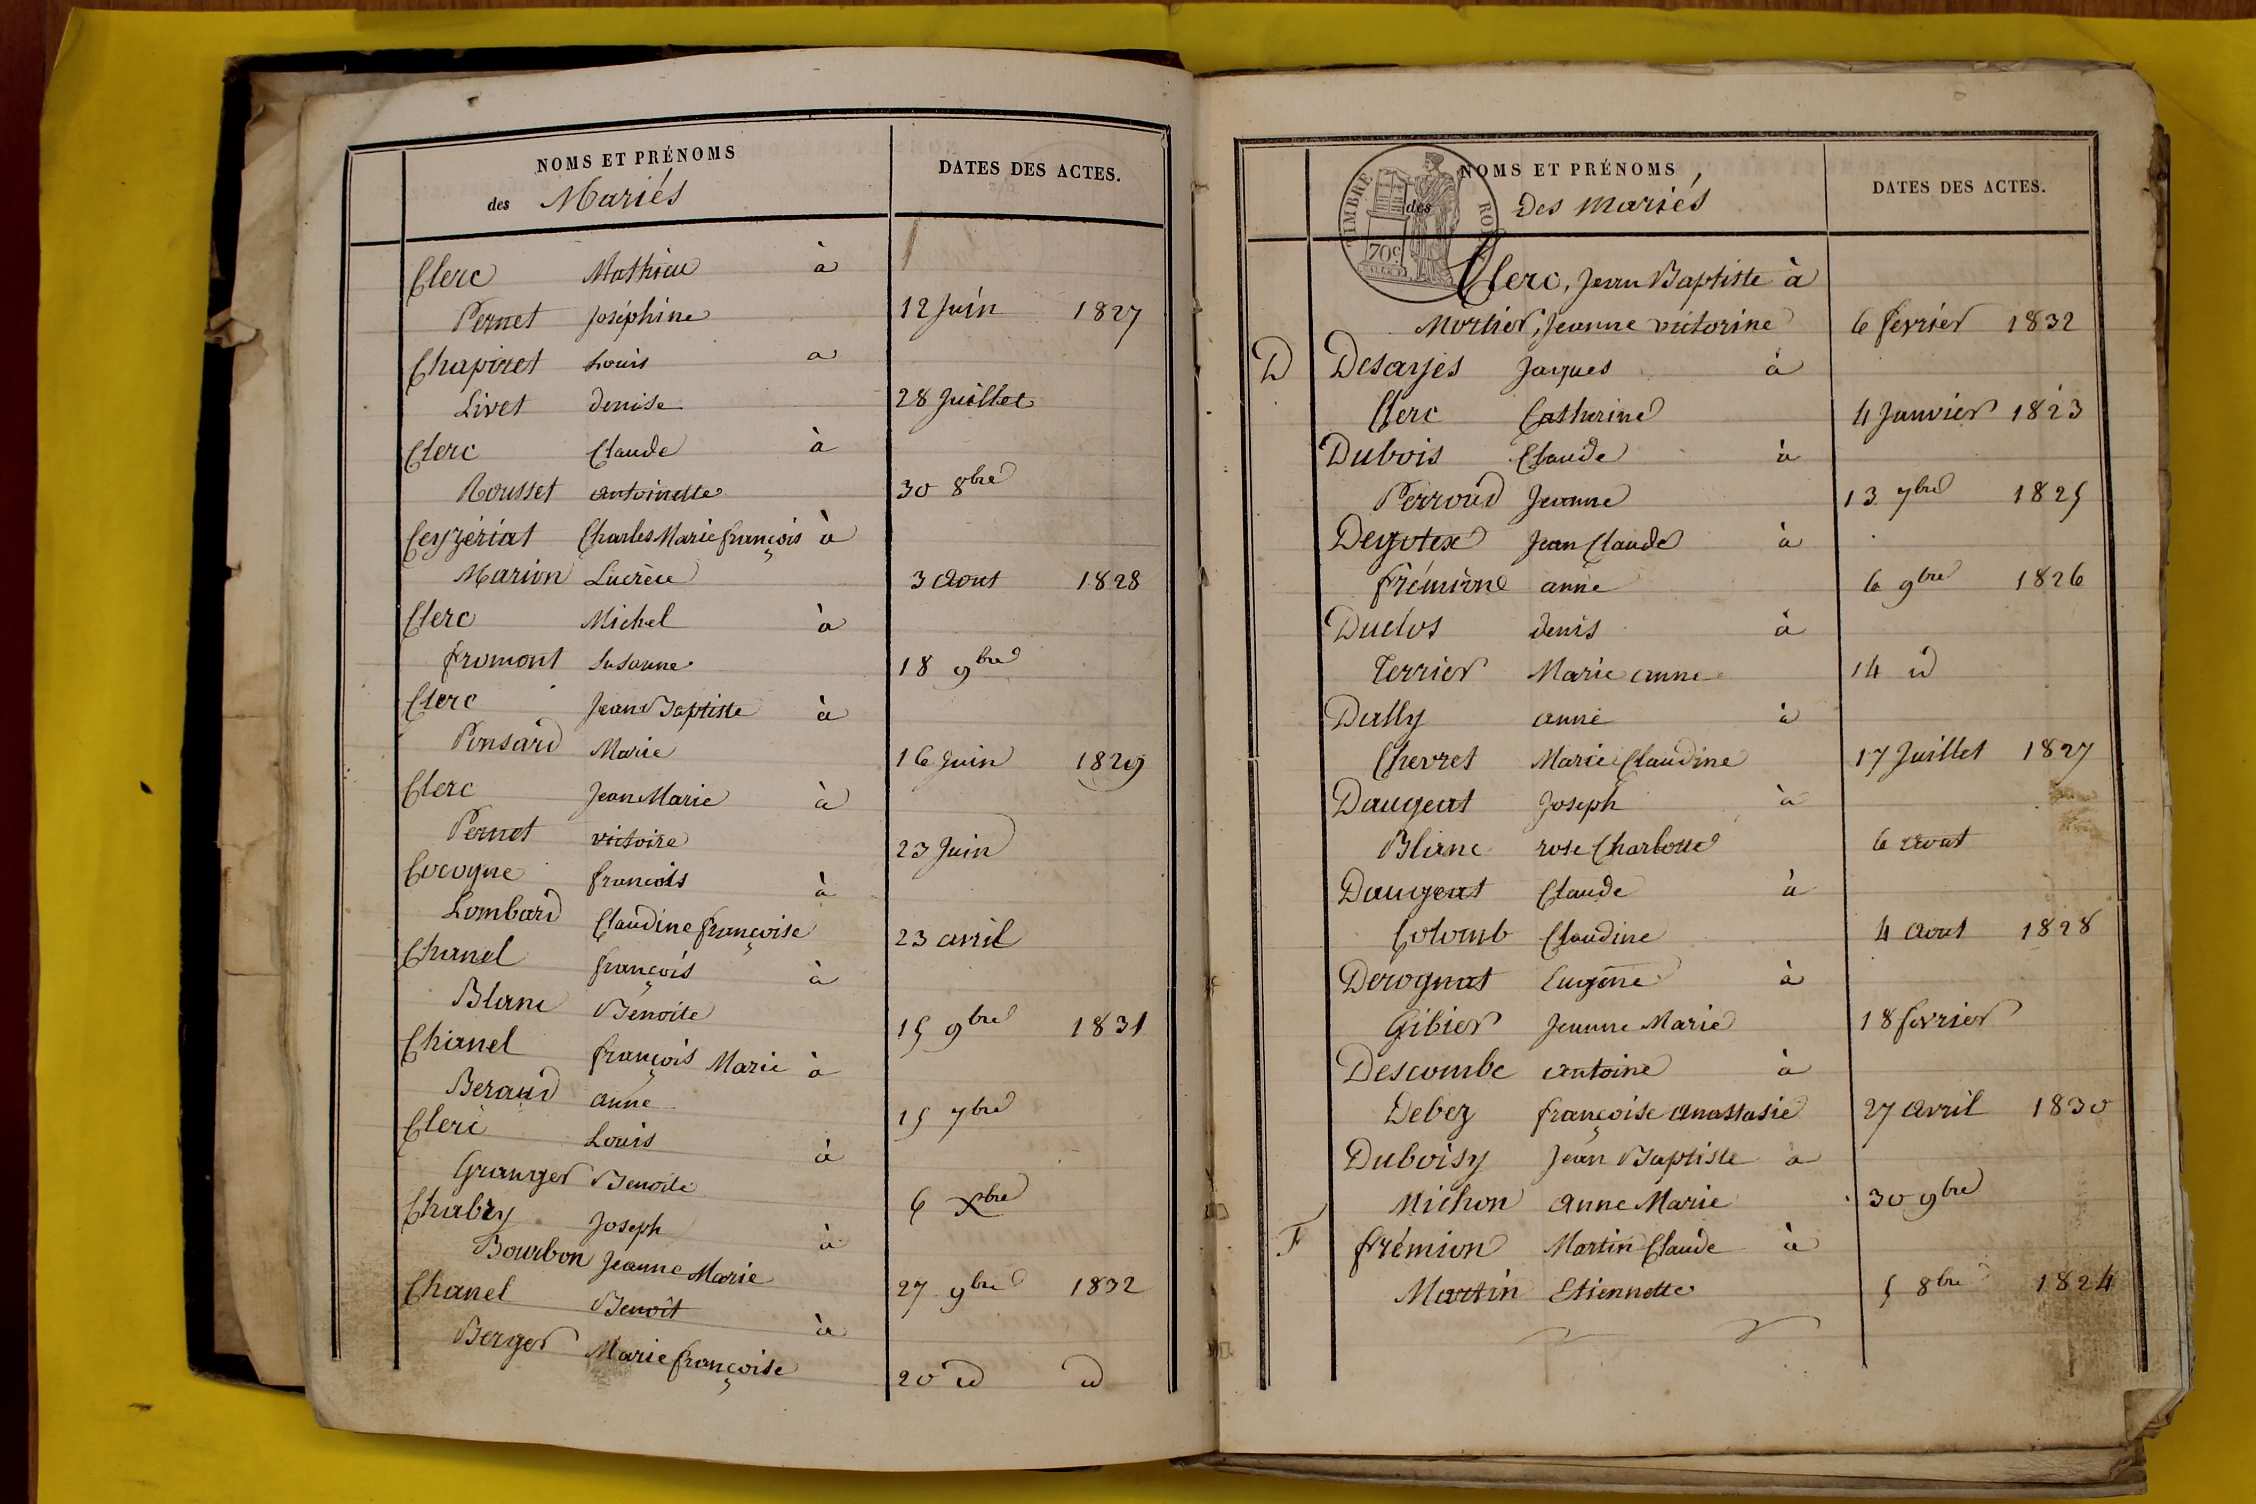 NOMS ET PRÉNOMS
des Mariés
DATES DES ACTES.
Clerc Mathieu à
Pernet Joséphine 12 Juin 1827
Chapiret Louis a
Livet denise 28 Juillet
Clerc Claude à
Rousset antoinette 30 8bre
Ceyzériat Charles Marie françois à
Marion Lucrèce 3 Aout 1828
Clerc Michel à
fromont Susanne 18 9bre
Clerc Jean Baptiste à
Ponsard Marie 16 Juin 1829
Clerc Jean Marie à
Pernet victoire 23 Juin
Cocogne francois à
Lombard Claudine françoise 23 avril
Chanel françois à
Blanc Benoite 15 9bre 1831
Chanel françois Marie à
Beraud anne 15 7bre
Clerc Louis à
Granger Benoite 6 Xbre
Chabry Joseph à
Bourbon Jeanne Marie 27 9bre 1832
Chanel Benoit à
Berger Marie françoise 20 id id
NOMS ET PRÉNOMS
des Des mariés
DATES DES ACTES.
TIMBRE RO
70c
Clerc, Jean Baptiste à
Mortier, Jeanne victorine 6 fevrier 1832
D Desarjes Jaques à
Clerc Catherine 4 Janvier 1823
Dubois Claude à
Perroud Jeanne 13 7bre 1825
Deyotex Jean Claude à
frémione anne 6 9bre 1826
Duclos denis à
Terrier Marie anne 14 id
Dally anne à
Chevret Marie Claudine 17 Juillet 1827
Daugeat Joseph à
Blanc rose Charlotte 6 aout
Daugeat Claude à
Colomb Claudine 4 Aout 1828
Derognat Eugène à
Gibier Jeanne Marie 18 fevrier
Descombe antoine à
Debez françoise anastasie 27 avril 1830
Duboisy Jean Baptiste à
Michon Anne Marie 30 9bre
F frémion Martin Claude à
Martin Etiennette 5 8bre 1824